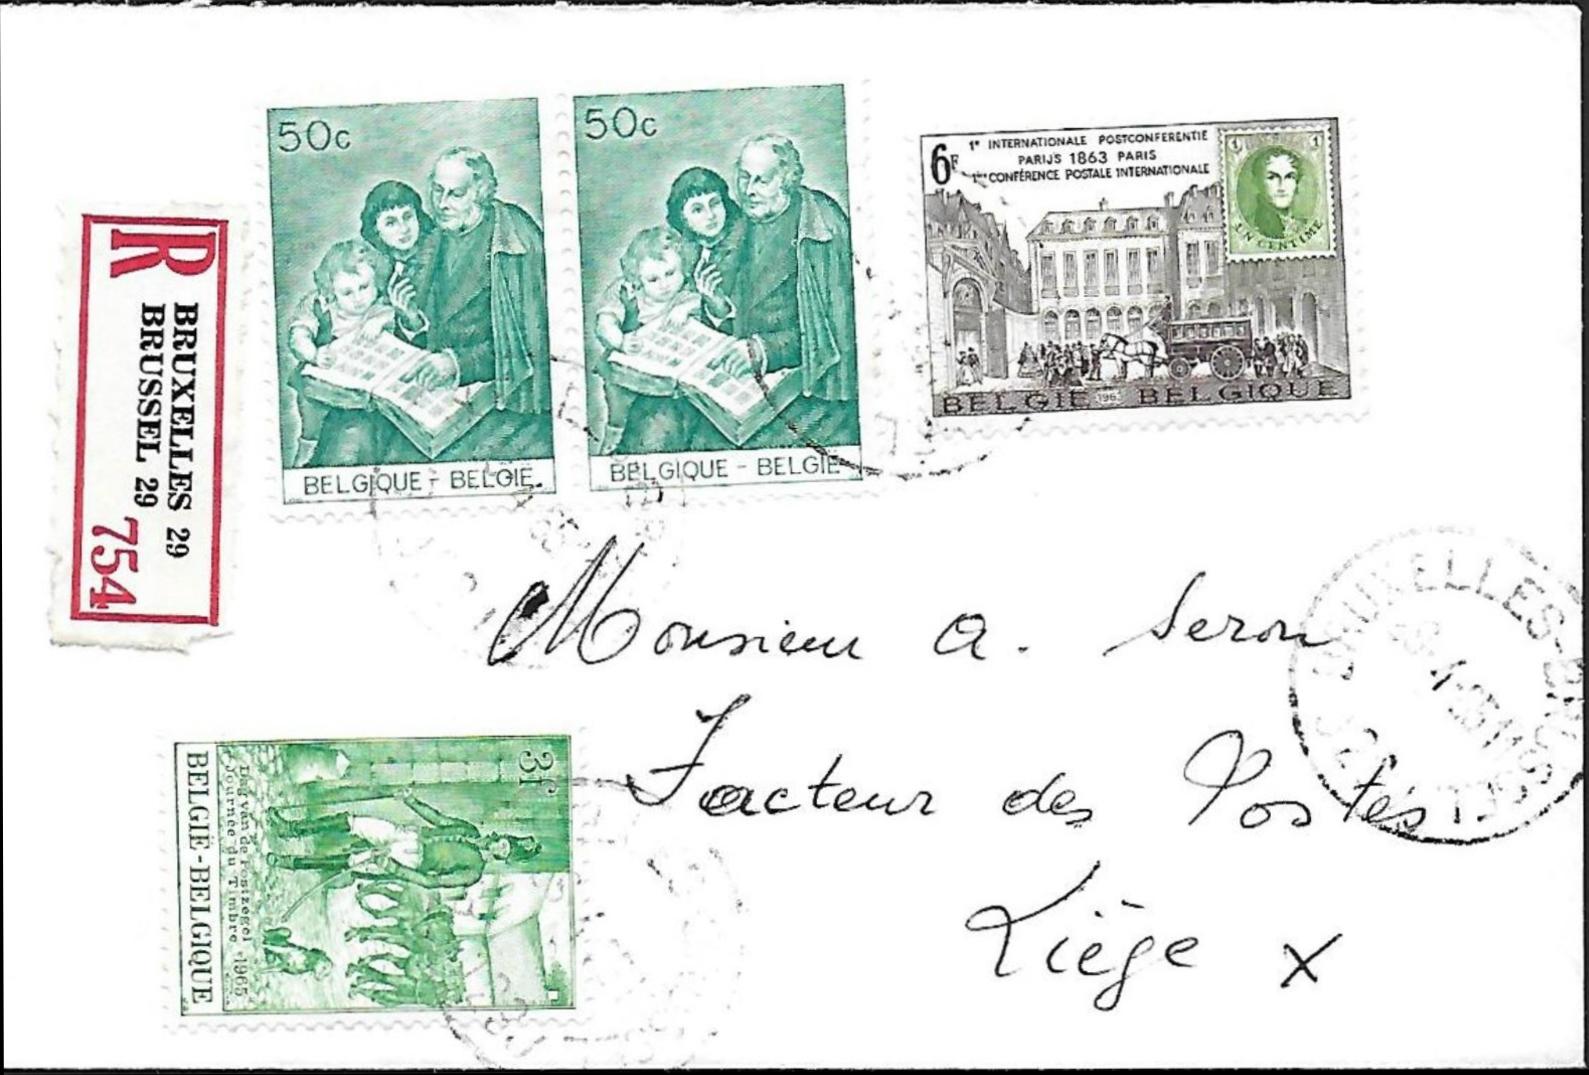 R
BRUXELLES 29
BRUSSEL 29
754
50c
BELGIQUE - BELGIË
50c
BELGIQUE - BELGIË
6F
1e INTERNATIONALE POSTCONFERENTIE
PARIJS 1863 PARIS
1ère CONFÉRENCE POSTALE INTERNATIONALE
1 1
UN CENTIME
BELGIË 1963 BELGIQUE
Monsieur A. Seron
Facteur des Postes
Liège X
BRUXELLES-BRUSSEL
3F
Dag van de Postzegel 1965
Journée du Timbre
BELGIË-BELGIQUE